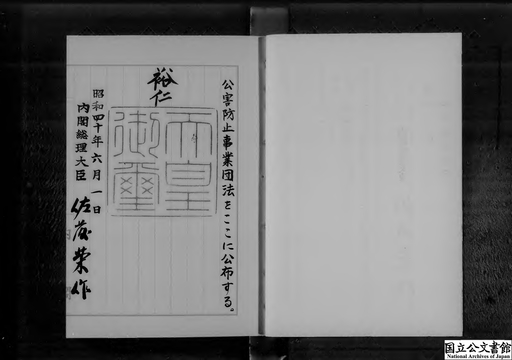 公害防止事業団法をここに公布する。
裕仁
天皇御璽
昭和四十年六月一日
内閣総理大臣 佐藤榮作
国立公文書館
National Archives of Japan